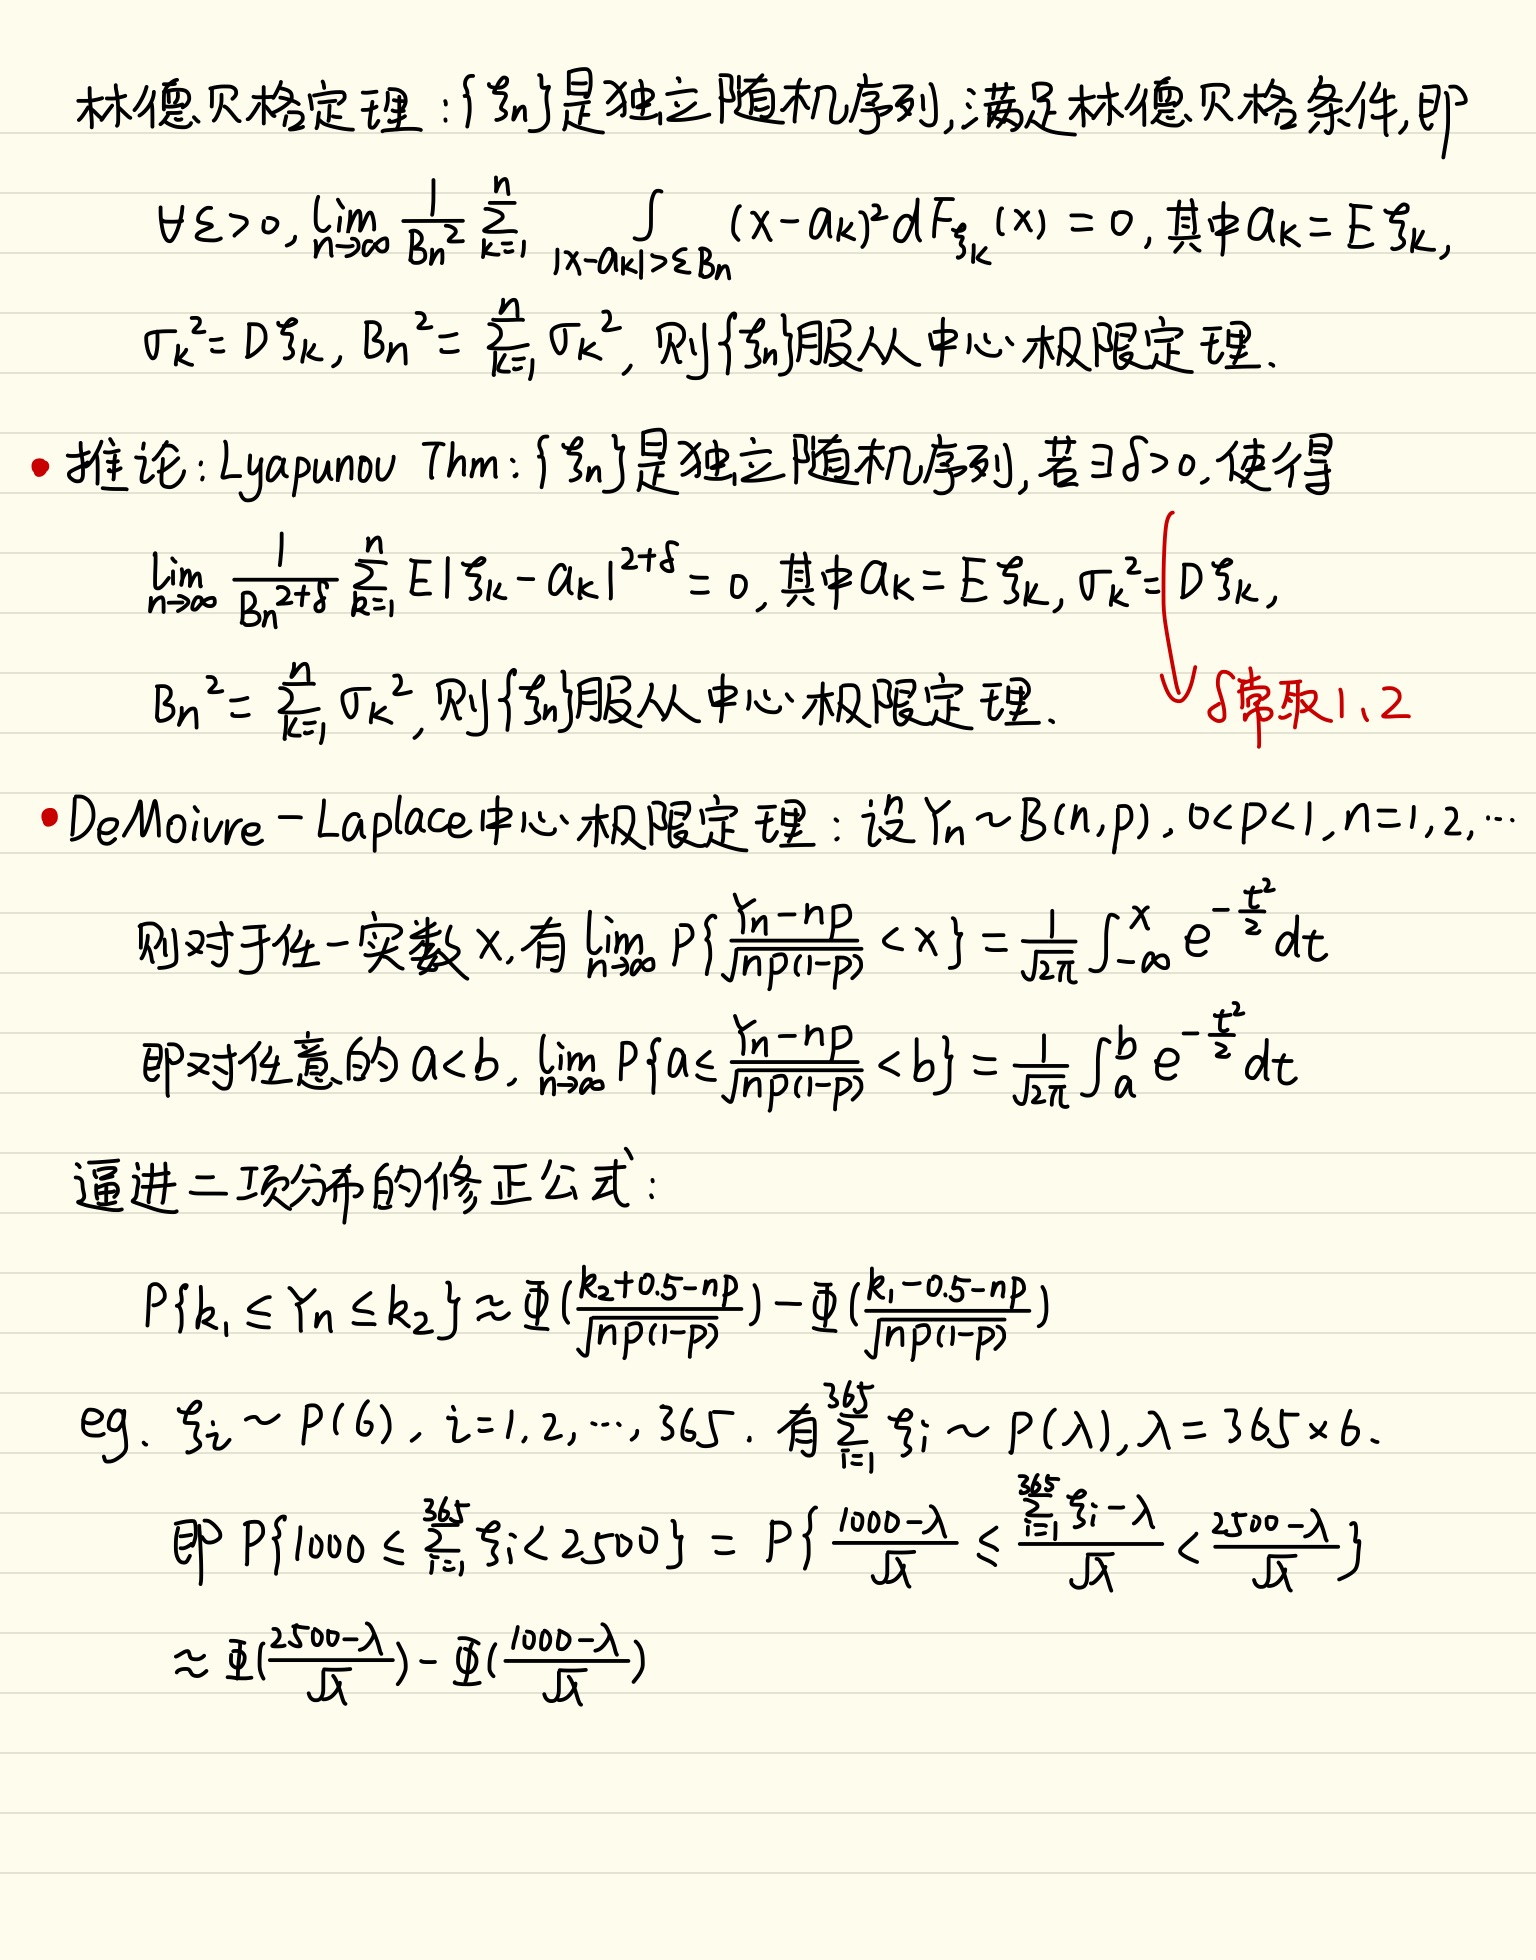 林德贝格定理:{ξn}是独立随机序列,满足林德贝格条件,即
∀ε>0, lim_{n→∞} 1/Bn² ∑_{k=1}^{n} ∫_{|x-ak|>εBn} (x-ak)² dF_{ξk}(x) = 0, 其中ak = Eξk,
σk² = Dξk, Bn² = ∑_{k=1}^{n} σk², 则{ξn}服从中心极限定理.
• 推论: Lyapunou Thm: {ξn}是独立随机序列, 若∃δ>0, 使得
lim_{n→∞} 1/Bn^{2+δ} ∑_{k=1}^{n} E|ξk - ak|^{2+δ} = 0, 其中ak = Eξk, σk² = Dξk,
Bn² = ∑_{k=1}^{n} σk², 则{ξn}服从中心极限定理.
δ常取1、2
• DeMoivre - Laplace中心极限定理: 设Yn ~ B(n,p), 0<p<1, n=1,2,…
则对于任一实数x, 有 lim_{n→∞} P{(Yn-np)/√(np(1-p)) < x} = 1/√(2π) ∫_{-∞}^{x} e^{-t²/2} dt
即对任意的a<b, lim_{n→∞} P{a ≤ (Yn-np)/√(np(1-p)) < b} = 1/√(2π) ∫_{a}^{b} e^{-t²/2} dt
逼进二项分布的修正公式:
P{k₁ ≤ Yn ≤ k₂} ≈ Φ((k₂+0.5-np)/√(np(1-p))) - Φ((k₁-0.5-np)/√(np(1-p)))
eg. ξi ~ P(6), i=1,2,…,365. 有 ∑_{i=1}^{365} ξi ~ P(λ), λ = 365×6.
即 P{1000 ≤ ∑_{i=1}^{365} ξi < 2500} = P{(1000-λ)/√λ ≤ (∑_{i=1}^{365} ξi - λ)/√λ < (2500-λ)/√λ}
≈ Φ((2500-λ)/√λ) - Φ((1000-λ)/√λ)